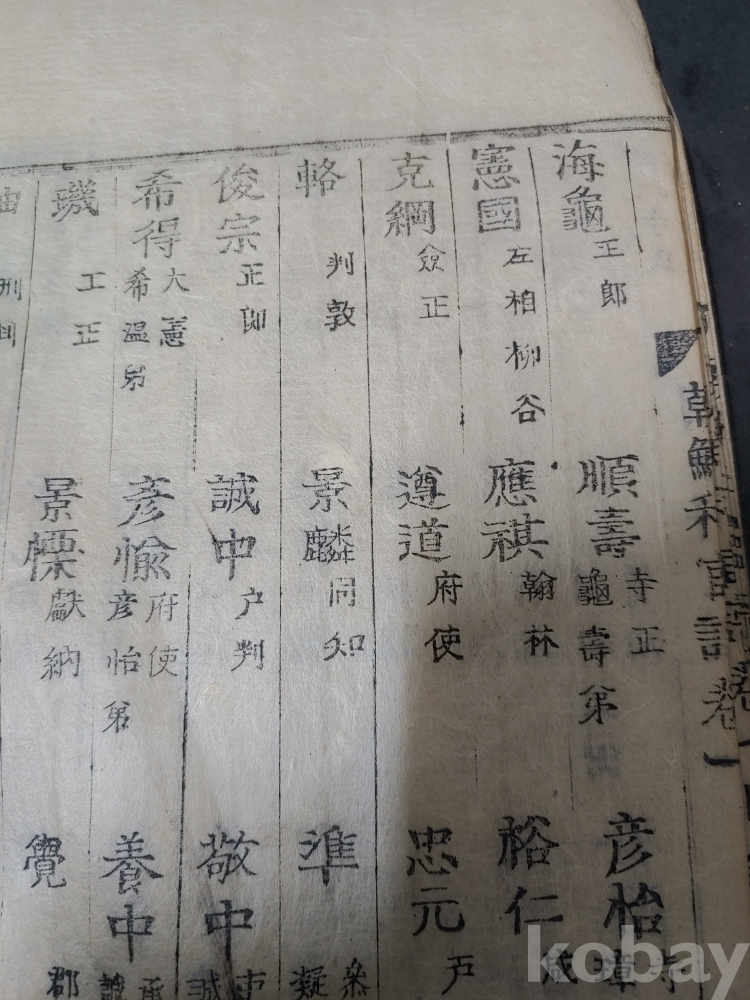 朝鮮科宦譜卷一
海龜 正郎
順壽 寺正 龜壽弟
彦怡 寺
憲國 左相柳谷
應祺 翰林
裕仁
克綱 僉正
遵道 府使
忠元 戶
輅 判敦
景麟 同知
準 參 凝
俊宗 正郎
誠中 戶判
敬中 吏 誠
希得 大憲 希溫弟
彦愉 府使 彦怡弟
養中 承 誠
璣 工正
景慄 獻納
覺 郡
刑判
kobay